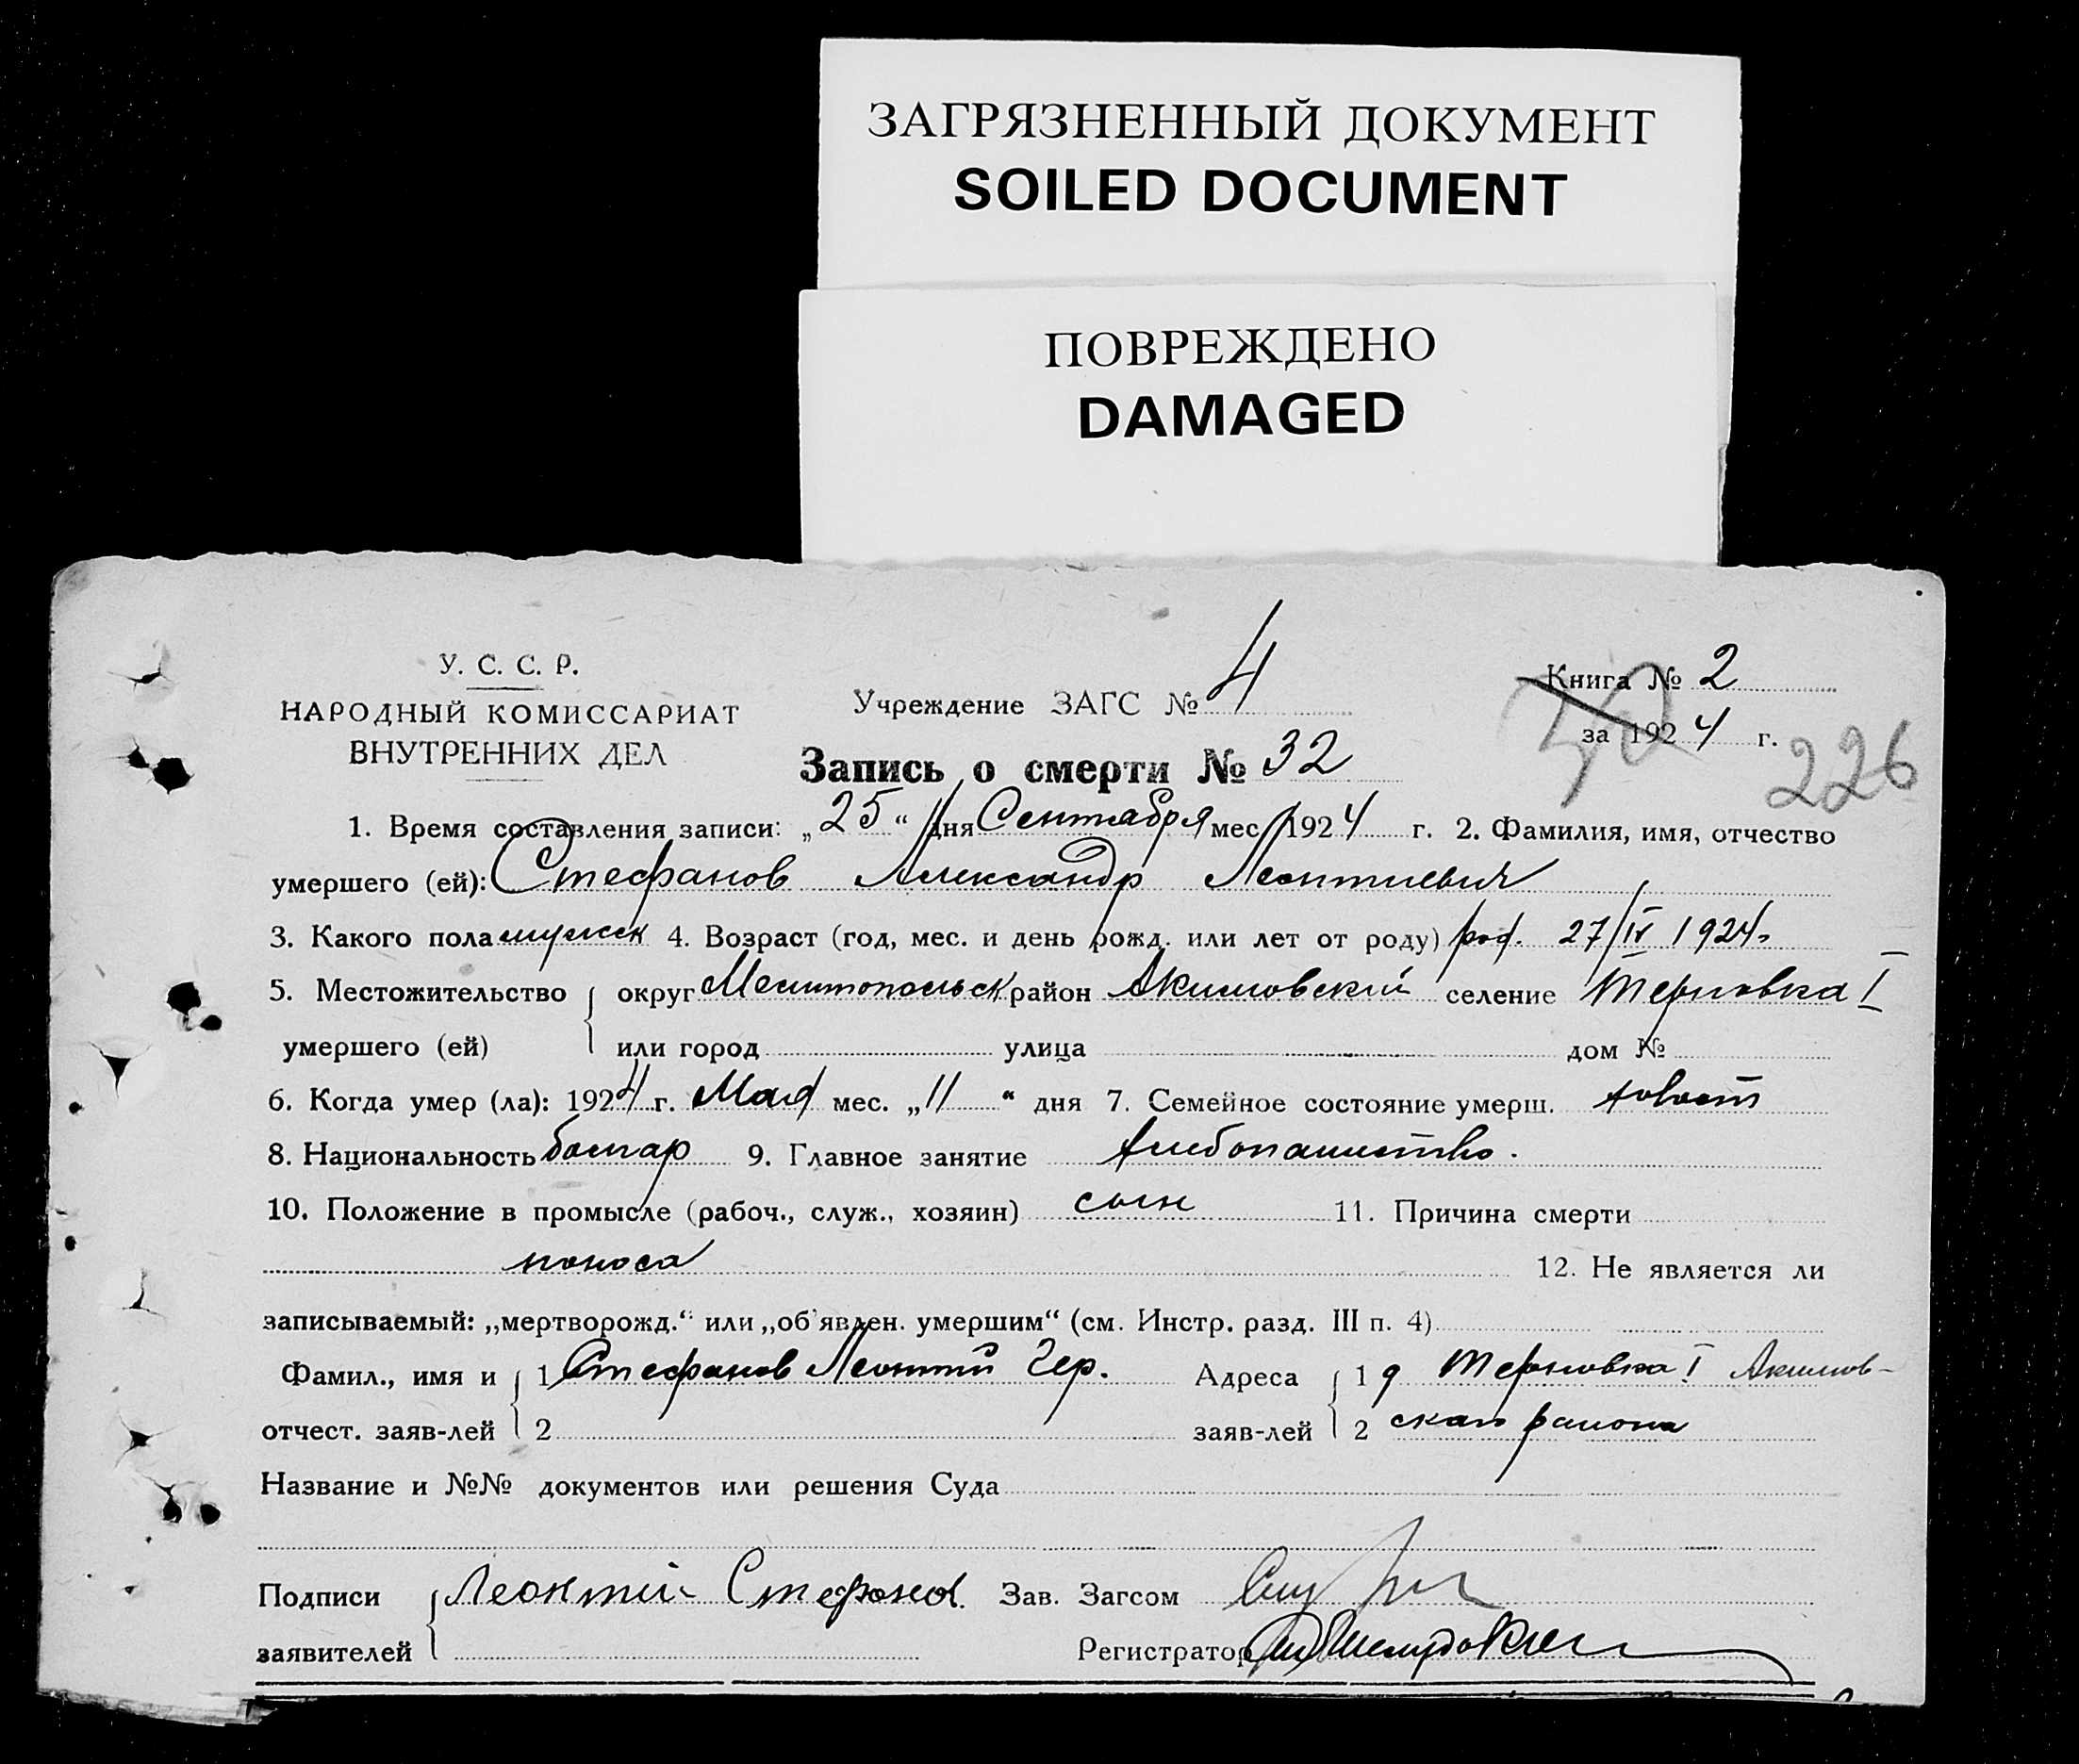 ЗАГРЯЗНЕННЫЙ ДОКУМЕНТ
SOILED DOCUMENT
ПОВРЕЖДЕНО
DAMAGED
У. С. С. Р.
НАРОДНЫЙ КОМИССАРИАТ
ВНУТРЕННИХ ДЕЛ
Учреждение ЗАГС № 4
Книга № 2
за 1924 г.
226
Запись о смерти № 32
1. Время составления записи: „25“ дня Сентября мес. 1924 г. 2. Фамилия, имя, отчество
умершего (ей): Стефанов Александр Леонтиевич
3. Какого пола мужск 4. Возраст (год, мес. и день рожд. или лет от роду) род. 27/IV 1924.
5. Местожительство округ Мелитопольск район Акимовский селение Терновка I
умершего (ей) или город улица дом №
6. Когда умер (ла): 1924 г. Мая мес. „11“ дня 7. Семейное состояние умерш. холост
8. Национальность болгар 9. Главное занятие хлебопашество.
10. Положение в промысле (рабоч., служ., хозяин) сын 11. Причина смерти
поноса 12. Не является ли
записываемый: „мертворожд.“ или „об'явлен. умершим“ (см. Инстр. разд. III п. 4)
Фамил., имя и 1 Стефанов Леонтий Гер. Адреса 1 д Терновка I Акимов-
отчест. заяв-лей 2 заяв-лей 2 скаго района
Название и №№ документов или решения Суда
Подписи Леонтий Стефанов. Зав. Загсом
заявителей Регистратор